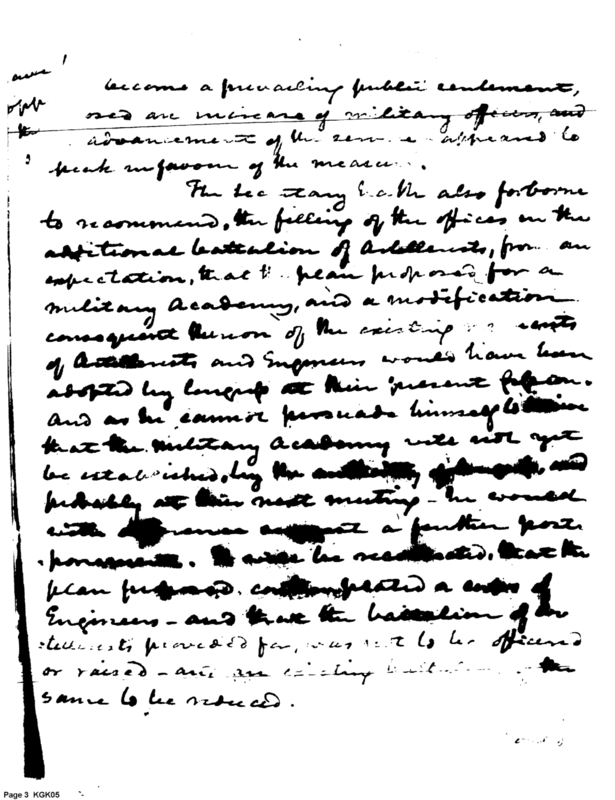 become a prevailing public sentiment,
opposed an increase of military officers, and
the advancement of the appeared to
speak in favour of the measure.
The Secretary also forborne
to recommend, the filling of the offices in the
additional battalion of Artillerists, from an
expectation, that the plan proposed for a
military Academy, and a modification
consequent thereon of the existing
of Artillerists and Engineers would have been
adopted by Congress at their present Session.
And as he cannot persuade himself to
that the military Academy will not yet
be established, by the and
probably at their next meeting - he would
with a further post
ponement. It will be recollected, that the
plan proposed, contemplated a corps of
Engineers - and that the battalion of Ar
tillerists provided for, was not to be officered
or raised - an existing the
same to be reduced.
Page 3 KGK05